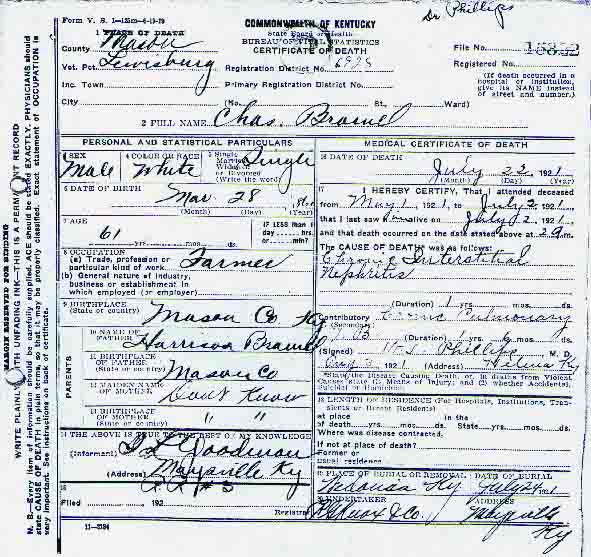 Dr Phillips
Form V. S. 1-
COMMONWEALTH OF KENTUCKY
1 PLACE OF DEATH
State Board of Health
BUREAU OF VITAL STATISTICS
CERTIFICATE OF DEATH
County Mason
File No.
Vot. Pct. Lewisburg
Registration District No.
Registered No.
(If death occurred in a hospital or institution, give its NAME instead of street and number.)
Inc. Town
Primary Registration District No.
City (No. St., Ward)
2 FULL NAME Chas. Bramel
PERSONAL AND STATISTICAL PARTICULARS
3 SEX Male
4 COLOR OR RACE White
5 Single Married Widowed or Divorced (Write the word) Single
6 DATE OF BIRTH Mar 28
(Month) (Day) (Year)
7 AGE 61 yrs. mos. ds.
IF LESS than 1 day, hrs. or min?
8 OCCUPATION
(a) Trade, profession or particular kind of work Farmer
(b) General nature of industry, business or establishment in which employed (or employer)
9 BIRTHPLACE (State or country) Mason Co Ky
PARENTS
10 NAME OF FATHER Harrison Bramel
11 BIRTHPLACE OF FATHER (State or country) Mason Co
12 MAIDEN NAME OF MOTHER Dont Know
13 BIRTHPLACE OF MOTHER (State or country) " "
14 THE ABOVE IS TRUE TO THE BEST OF MY KNOWLEDGE
(Informant) Goodman
(Address) Maysville Ky
15
Filed 192
Registrar
MEDICAL CERTIFICATE OF DEATH
16 DATE OF DEATH July 22 1921
(Month) (Day) (Year)
17 I HEREBY CERTIFY, That I attended deceased
from May 1 1921, to July 2 1921
that I last saw alive on July 2, 1921
and that death occurred on the date stated above at 2 9 m.
The CAUSE OF DEATH was as follows:
Chronic Interstitial
Nephritis
(Duration) 1 yrs. mos. ds.
Contributory (Secondary) Pulmonary
(Duration) yrs. 6 mos. ds.
(Signed) Phillips M. D.
1921 (Address) Helena Ky
*State the Disease Causing Death, or, in deaths from Violent Causes state (1) Means of Injury; and (2) whether Accidental, Suicidal or Homicidal.
18 LENGTH OF RESIDENCE (For Hospitals, Institutions, Transients or Recent Residents)
at place of death yrs. mos. ds. In the State yrs. mos. ds.
Where was disease contracted,
If not at place of death?
Former or usual residence
19 PLACE OF BURIAL OR REMOVAL
DATE OF BURIAL
Ky July 24 1921
20 UNDERTAKER
ADDRESS
Knox & Co. Maysville
Ky
11-3184
MARGIN RESERVED FOR BINDING
WRITE PLAINLY WITH UNFADING INK—THIS IS A PERMANENT RECORD
N. B.—Every item of information should be carefully supplied. AGE should be stated EXACTLY. PHYSICIANS should
state CAUSE OF DEATH in plain terms, so that it may be properly classified. Exact statement of OCCUPATION is
very important. See instructions on back of certificate.